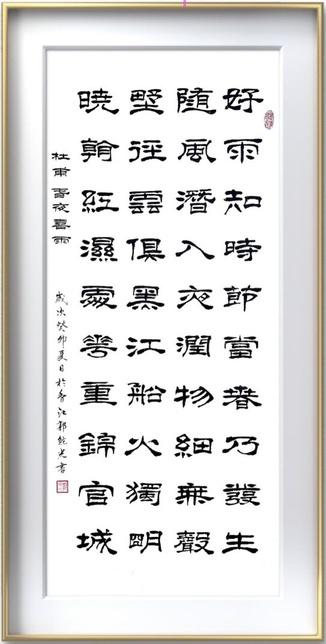 好雨知時節當春乃發生
随風潛入夜潤物細無聲
野徑雲俱黑江船火獨明
曉看紅濕處花重錦官城
杜甫 春夜喜雨
歲次癸卯夏日於香江郭光書